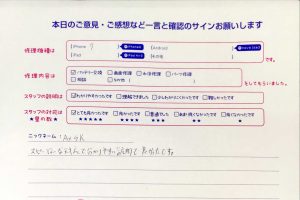 本日のご意見・ご感想など一言と確認のサインお願いします
修理機種は
iPhone 7
Android
iPad
その他
です。
修理内容は
バッテリー交換 画面修理 水没修理 パーツ修理
その他
をしてもらいました。
スタッフの説明は
わかりやすかったです 理解できました 少しわかりにくかったです 難しかったです
スタッフの対応は
★星の数★
とても良かったです 良かったです 普通でした あまり良くなかったです 良くなかったです
★★★★★ ★★★★ ★★★ ★★ ★
ニックネーム:
スピーディーな
説明で良かったです